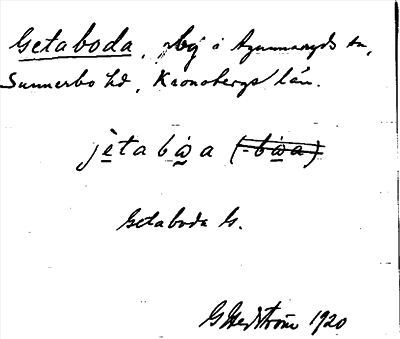 Getaboda, by i Agunnaryds sn,
Sunnerbo hd, Kronobergs län.
jètabωa (-bωa)
Getaboda G.
G Hedström 1920